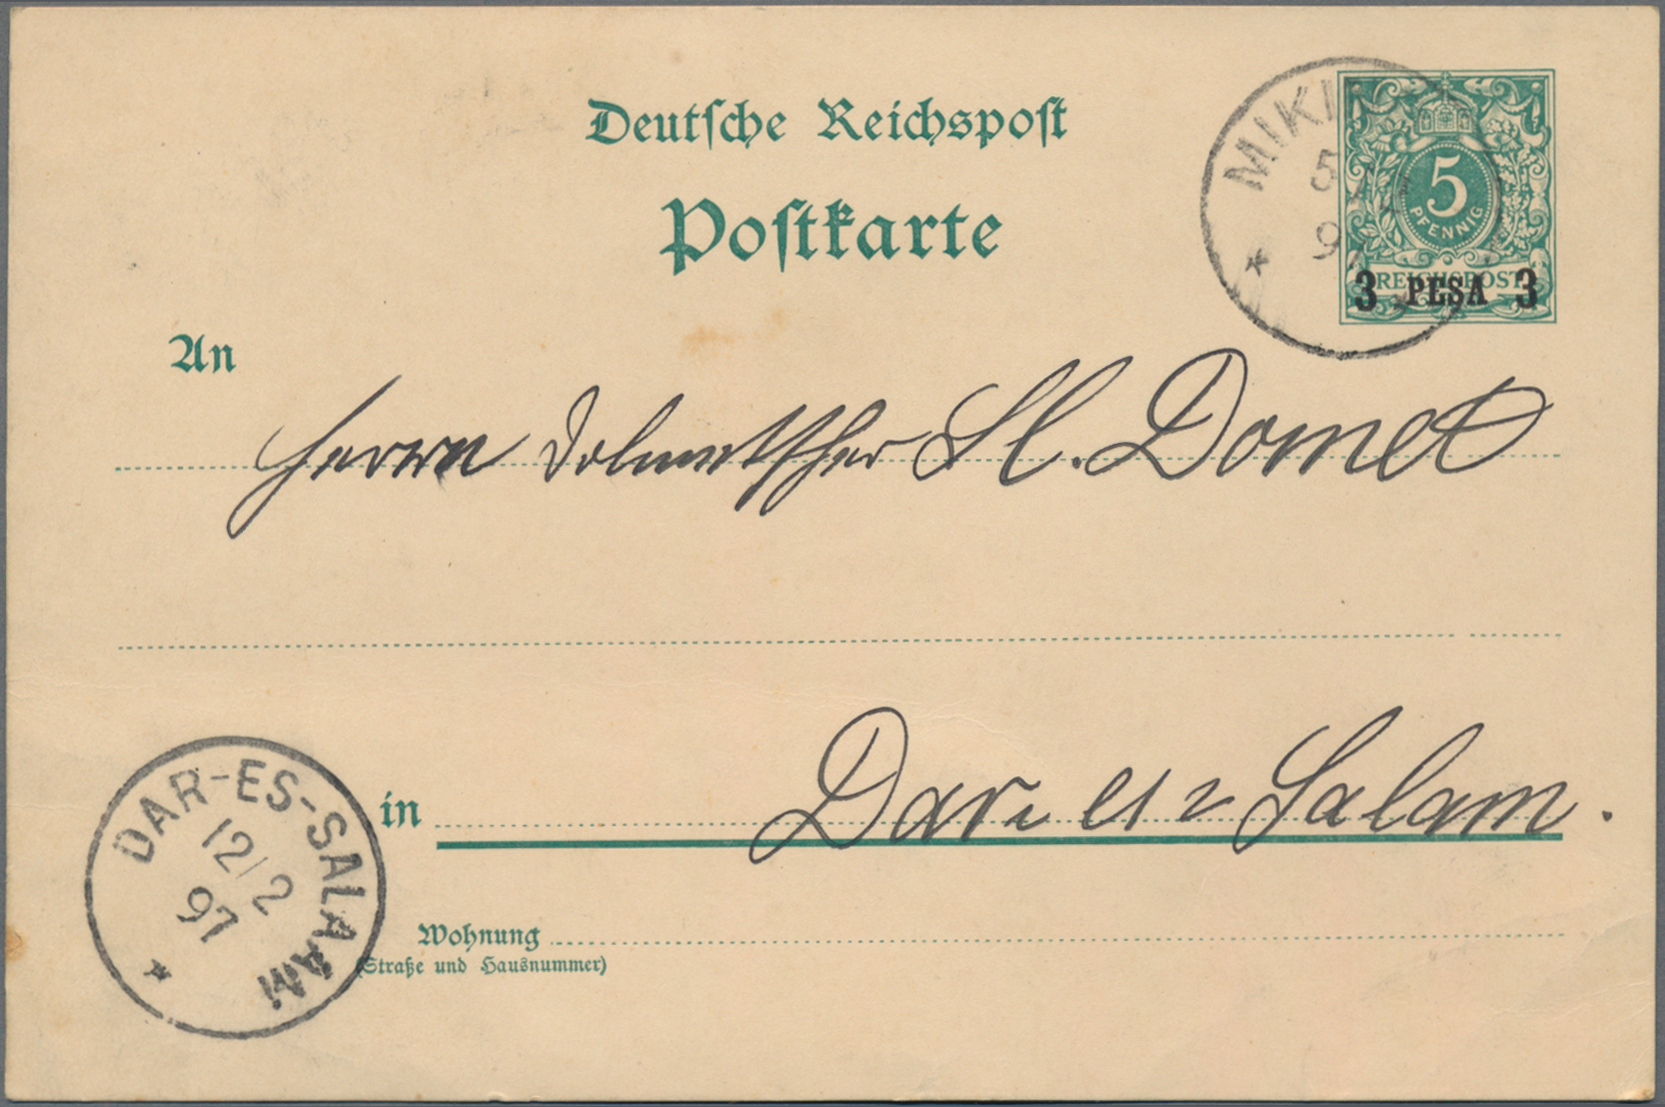 Deutsche Reichspost
Postkarte
MIKI
5
97
5
PFENNIG
REICHSPOST
3 PESA 3
An
Herrn Dolmetscher Sl. Domet
in Dar es Salam.
DAR-ES-SALAAM
12/2
97
*
Wohnung
(Straße und Hausnummer)